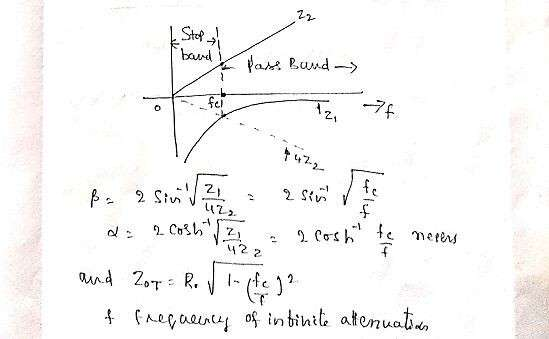 Z2
Stop
band
Pass Band
0
fc
f
Z1
4Z2
β = 2 Sin⁻¹ √(Z1/4Z2) = 2 Sin⁻¹ √(fc/f)
α = 2 Cosh⁻¹ √(Z1/4Z2) = 2 Cosh⁻¹ fc/f nepers
and ZOT = R. √(1-(fc/f)²)
f frequency of infinite attenuation